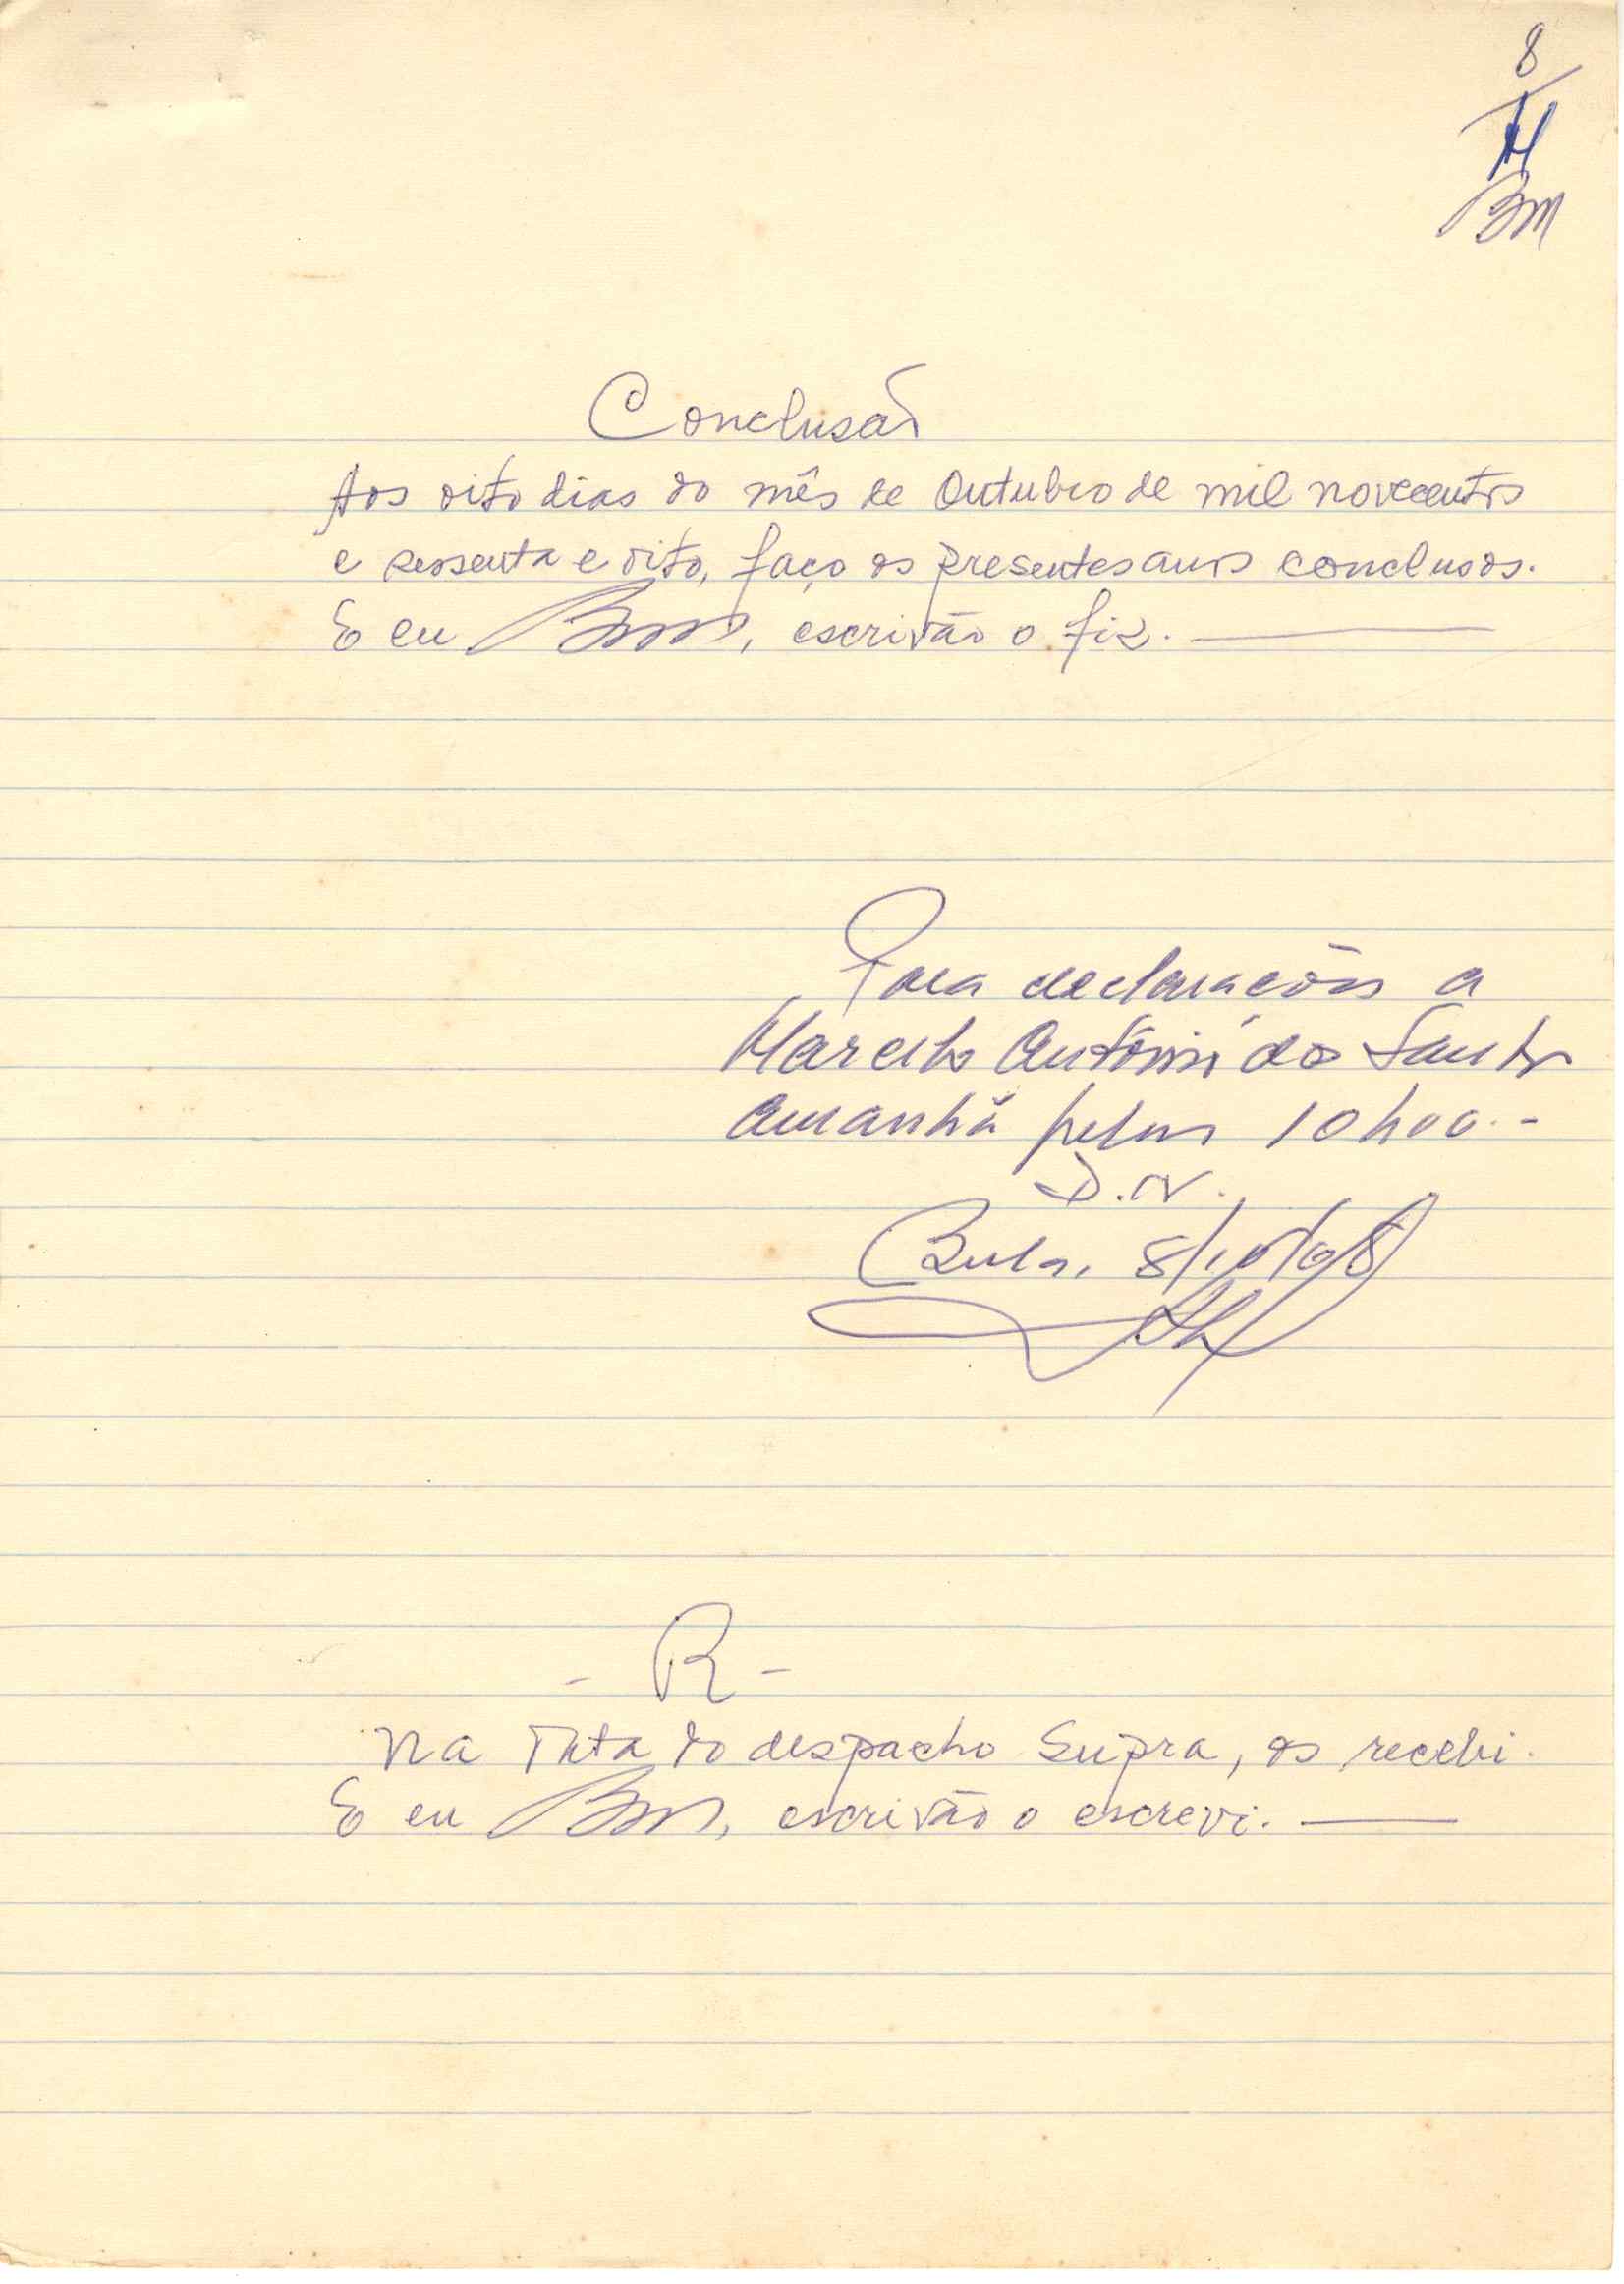 8
BM
Conclusão
Aos oito dias do mês de Outubro de mil novecentos
e sessenta e oito, faço os presentes autos conclusos.
E eu, escrivão o fiz.
Para declarações a
António dos Santos
Amanhã pelas 10h00.-
D.N.
Bula, 8/10/68
- R -
Na Data do despacho Supra, os recebi.
E eu, escrivão o escrevi.